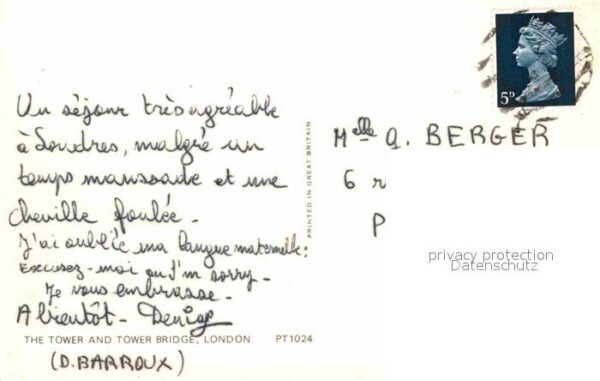 Un séjour très agréable
à Londres, malgré un
temps maussade et une
cheville foulée -
J'ai oublié ma langue maternelle:
Excusez-moi ou I'm sorry -
Je vous embrasse -
A bientôt - Denise
THE TOWER AND TOWER BRIDGE, LONDON PT1024
(D. BARROUX)
PRINTED IN GREAT BRITAIN
5D
Melle A. BERGER
6 r
P
privacy protection
Datenschutz